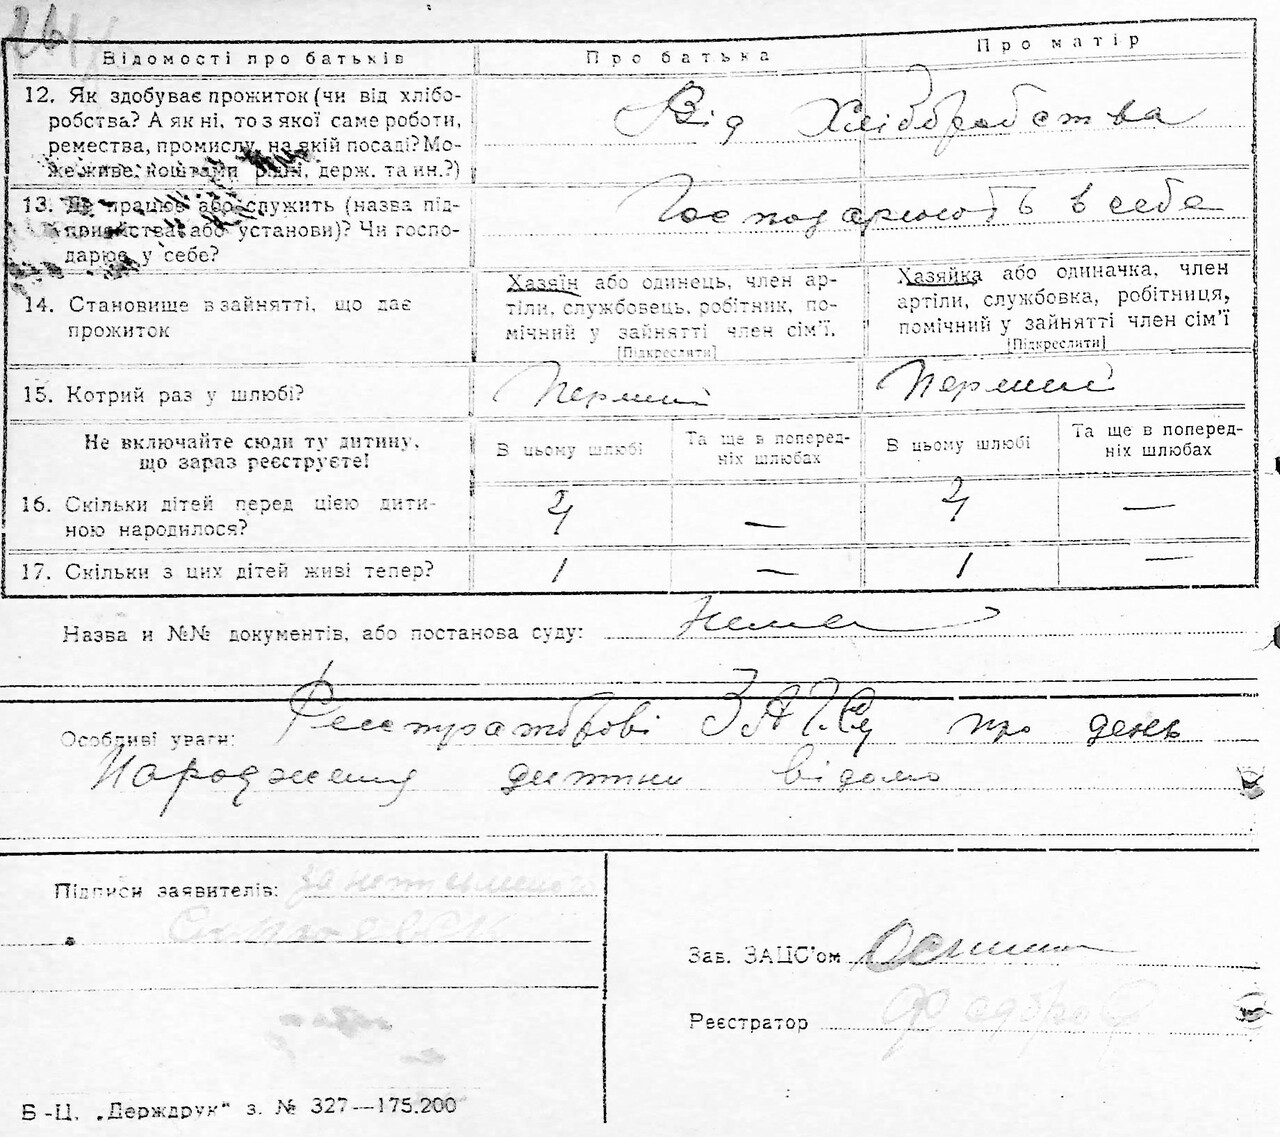 264
Відомості про батьків
Про батька
Про матір
12. Як здобуває прожиток (чи від хлібо-
робства? А як ні, то з якої саме роботи,
ремества, промислу, на якій посаді? Мо-
же живе коштами рідні, держ. та ин.?)
Від Хліборобства
13. Де працює або служить (назва під-
приємства або установи)? Чи госпо-
дарює у себе?
Господарюють в себе
14. Становище в зайнятті, що дає
прожиток
Хазяїн або одинець, член ар-
тіли, службовець, робітник, по-
мічний у зайнятті член сім'ї.
[Підкреслити]
Хазяйка або одиначка, член
артіли, службовка, робітниця,
помічний у зайнятті член сім'ї
[Підкреслити]
15. Котрий раз у шлюбі?
Перший
Перший
Не включайте сюди ту дитину,
що зараз реєструєте!
В цьому шлюбі
Та ще в поперед-
ніх шлюбах
В цьому шлюбі
Та ще в поперед-
ніх шлюбах
16. Скільки дітей перед цією дити-
ною народилося?
— —
17. Скільки з цих дітей живі тепер?
1 — 1 —
Назва и №№ документів, або постанова суду: Нема
Особливі уваги: Реєстраторові ЗАГСу про день
Народження дитини відомо
Підписи заявителів: за неписьменого
Зав. ЗАЦС'ом
Реєстратор
Б-Ц. „Держдрук" з. № 327—175.200